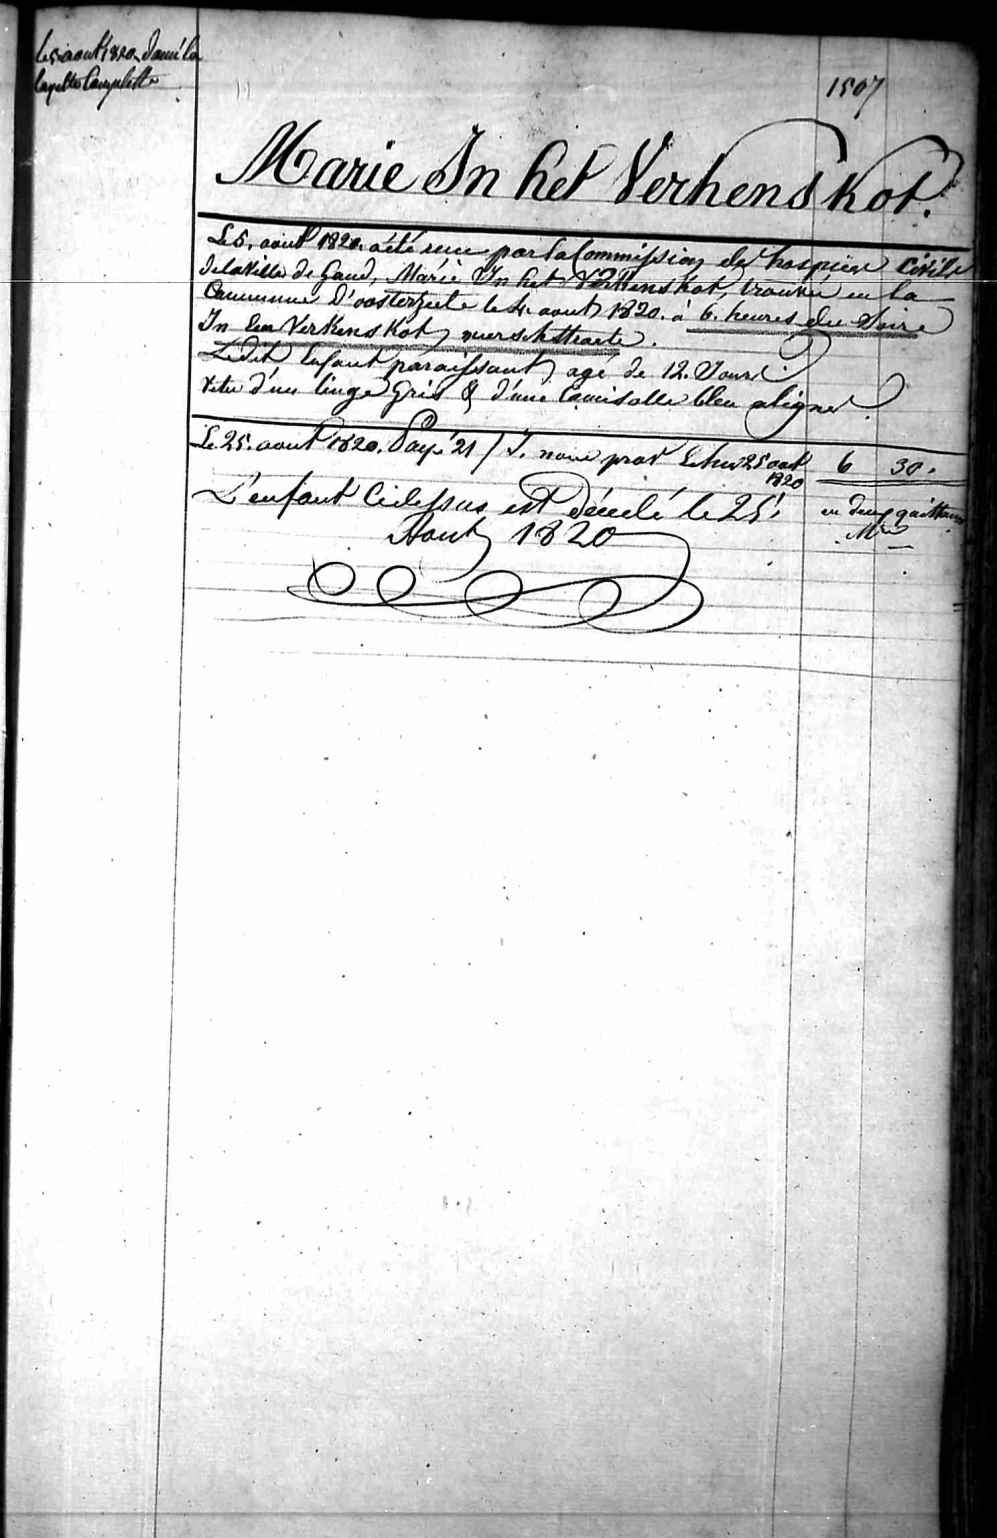 Le 5 aout 1820. donné la
layette Complette
1507
Marie In het Verkens Kot.
Le 5. août 1820. a été recue par la Commission des hospices Civils
de la Ville de Gand, Marie In het Verkens Kot, trouvée en la
Commune D'oosterzeele le 4. aout 1820. à 6. heures du Soire
In een Verkens Kot,
Ledit Enfant paraissant agé de 12. Jours
Vetu d'un linge Gris & d'une Camisolle bleu aligner
Le 25. aout 1820. Payé 21 J. nour 25 aout 6 30.
1820
L'enfant Cidessus est Décédé le 25. en deux quittances
Aout 1820